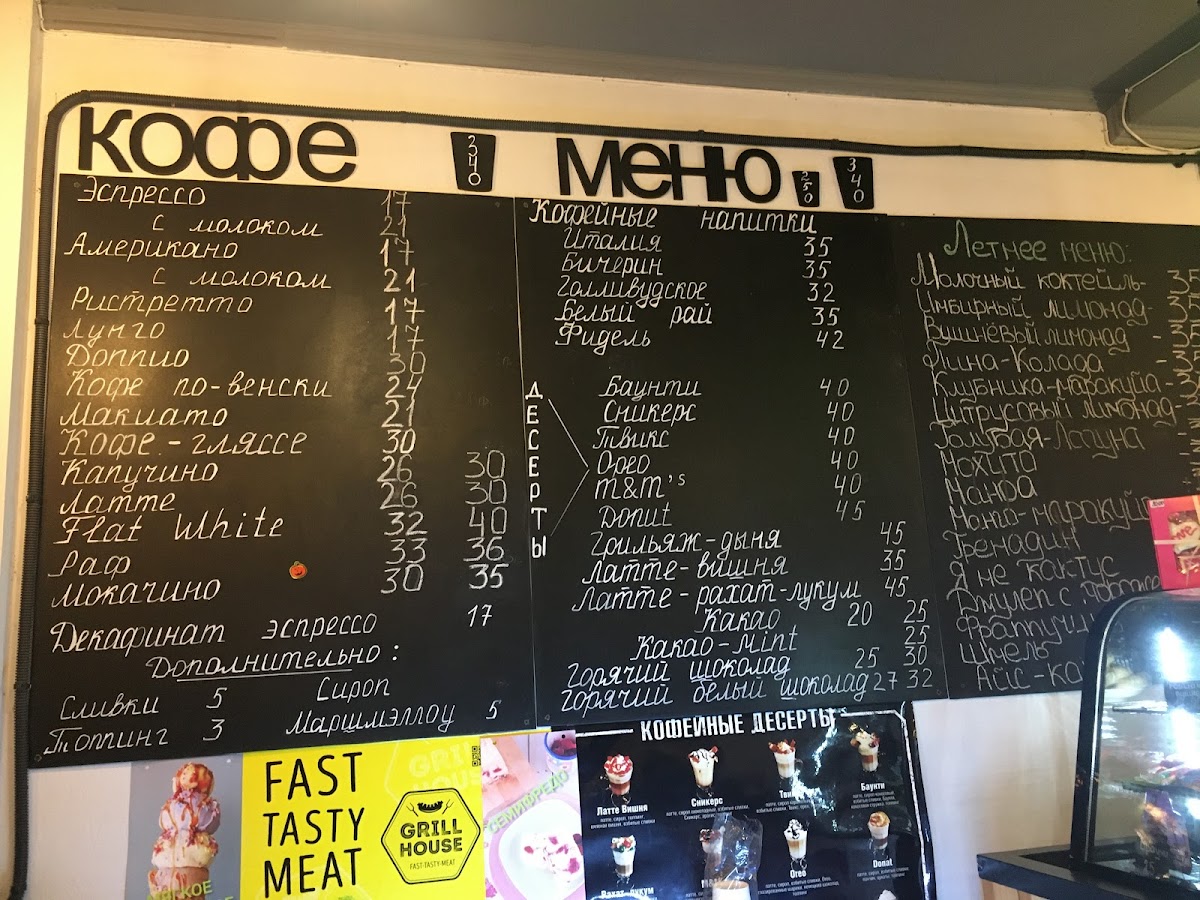 кофе 340 меню 250 340
Эспрессо 17
с молоком 21
Американо 17
с молоком 21
Ристретто 17
Лунго 17
Доппио 30
Кофе по-венски 27
Макиато 21
Кофе-гляссе 30
Капучино 26 30
Латте 26 30
Flat White 32 40
Раф 33 36
Мокачино 30 35
Декафинат эспрессо 17
Дополнительно:
Сливки 5 Сироп
Топпинг 3 Маршмэллоу 5
Кофейные напитки
Италия 35
Бичерин 35
Голливудское 32
Белый рай 35
Фидель 42
ДЕСЕРТЫ
Баунти 40
Сникерс 40
Твикс 40
Орео 40
m&m's 40
Donut 45
Грильяж-дыня 45
Латте-вишня 35
Латте-рахат-лукум 45
Какао 20 25
Какао-mint 25
Горячий шоколад 25 30
Горячий белый шоколад 27 32
Летнее меню:
Молочный коктейль- 35
Имбирный лимонад-
Вишнёвый лимонад -
Пина-Колада
Клубника-маракуйа-
Цитрусовый лимонад-
Голубая-Лагуна
Мохито
Манго-маракуйя
Гренадин
Я не кактус
Джулеп с
Фраппучи
Шмель
Айс-ка
FAST
TASTY
MEAT
GRILL
HOUSE
FAST-TASTY-MEAT
СЕМИФРЕДО
КОФЕЙНЫЕ ДЕСЕРТЫ
Латте Вишня
Сникерс
Баунти
Рахат-лукум
Oreo
Donat